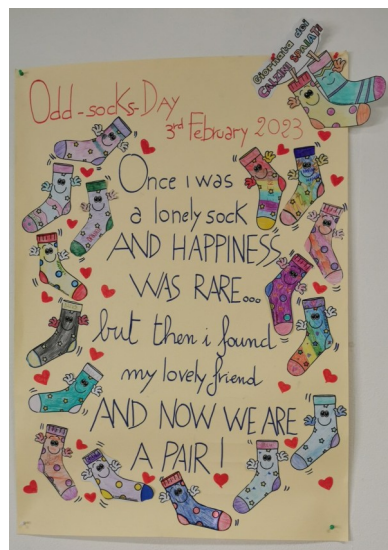 Giornata dei
CALZINI SPAIATI
Odd-socks-DAY
3rd February 2023
Once i was
a lonely sock
AND HAPPINESS
WAS RARE...
but then i found
my lovely friend
AND NOW WE ARE
A PAIR!